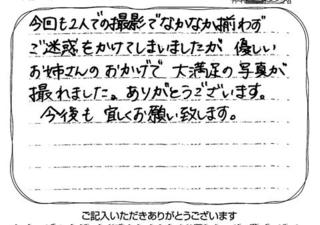 今回も2人での撮影でなかなか揃わず
ご迷惑をかけてしまいましたが 優しい
お姉さんの おかげで 大満足の写真が
撮れました。ありがとうございます。
今後も 宜しくお願い致します。
ご記入いただきありがとうございます